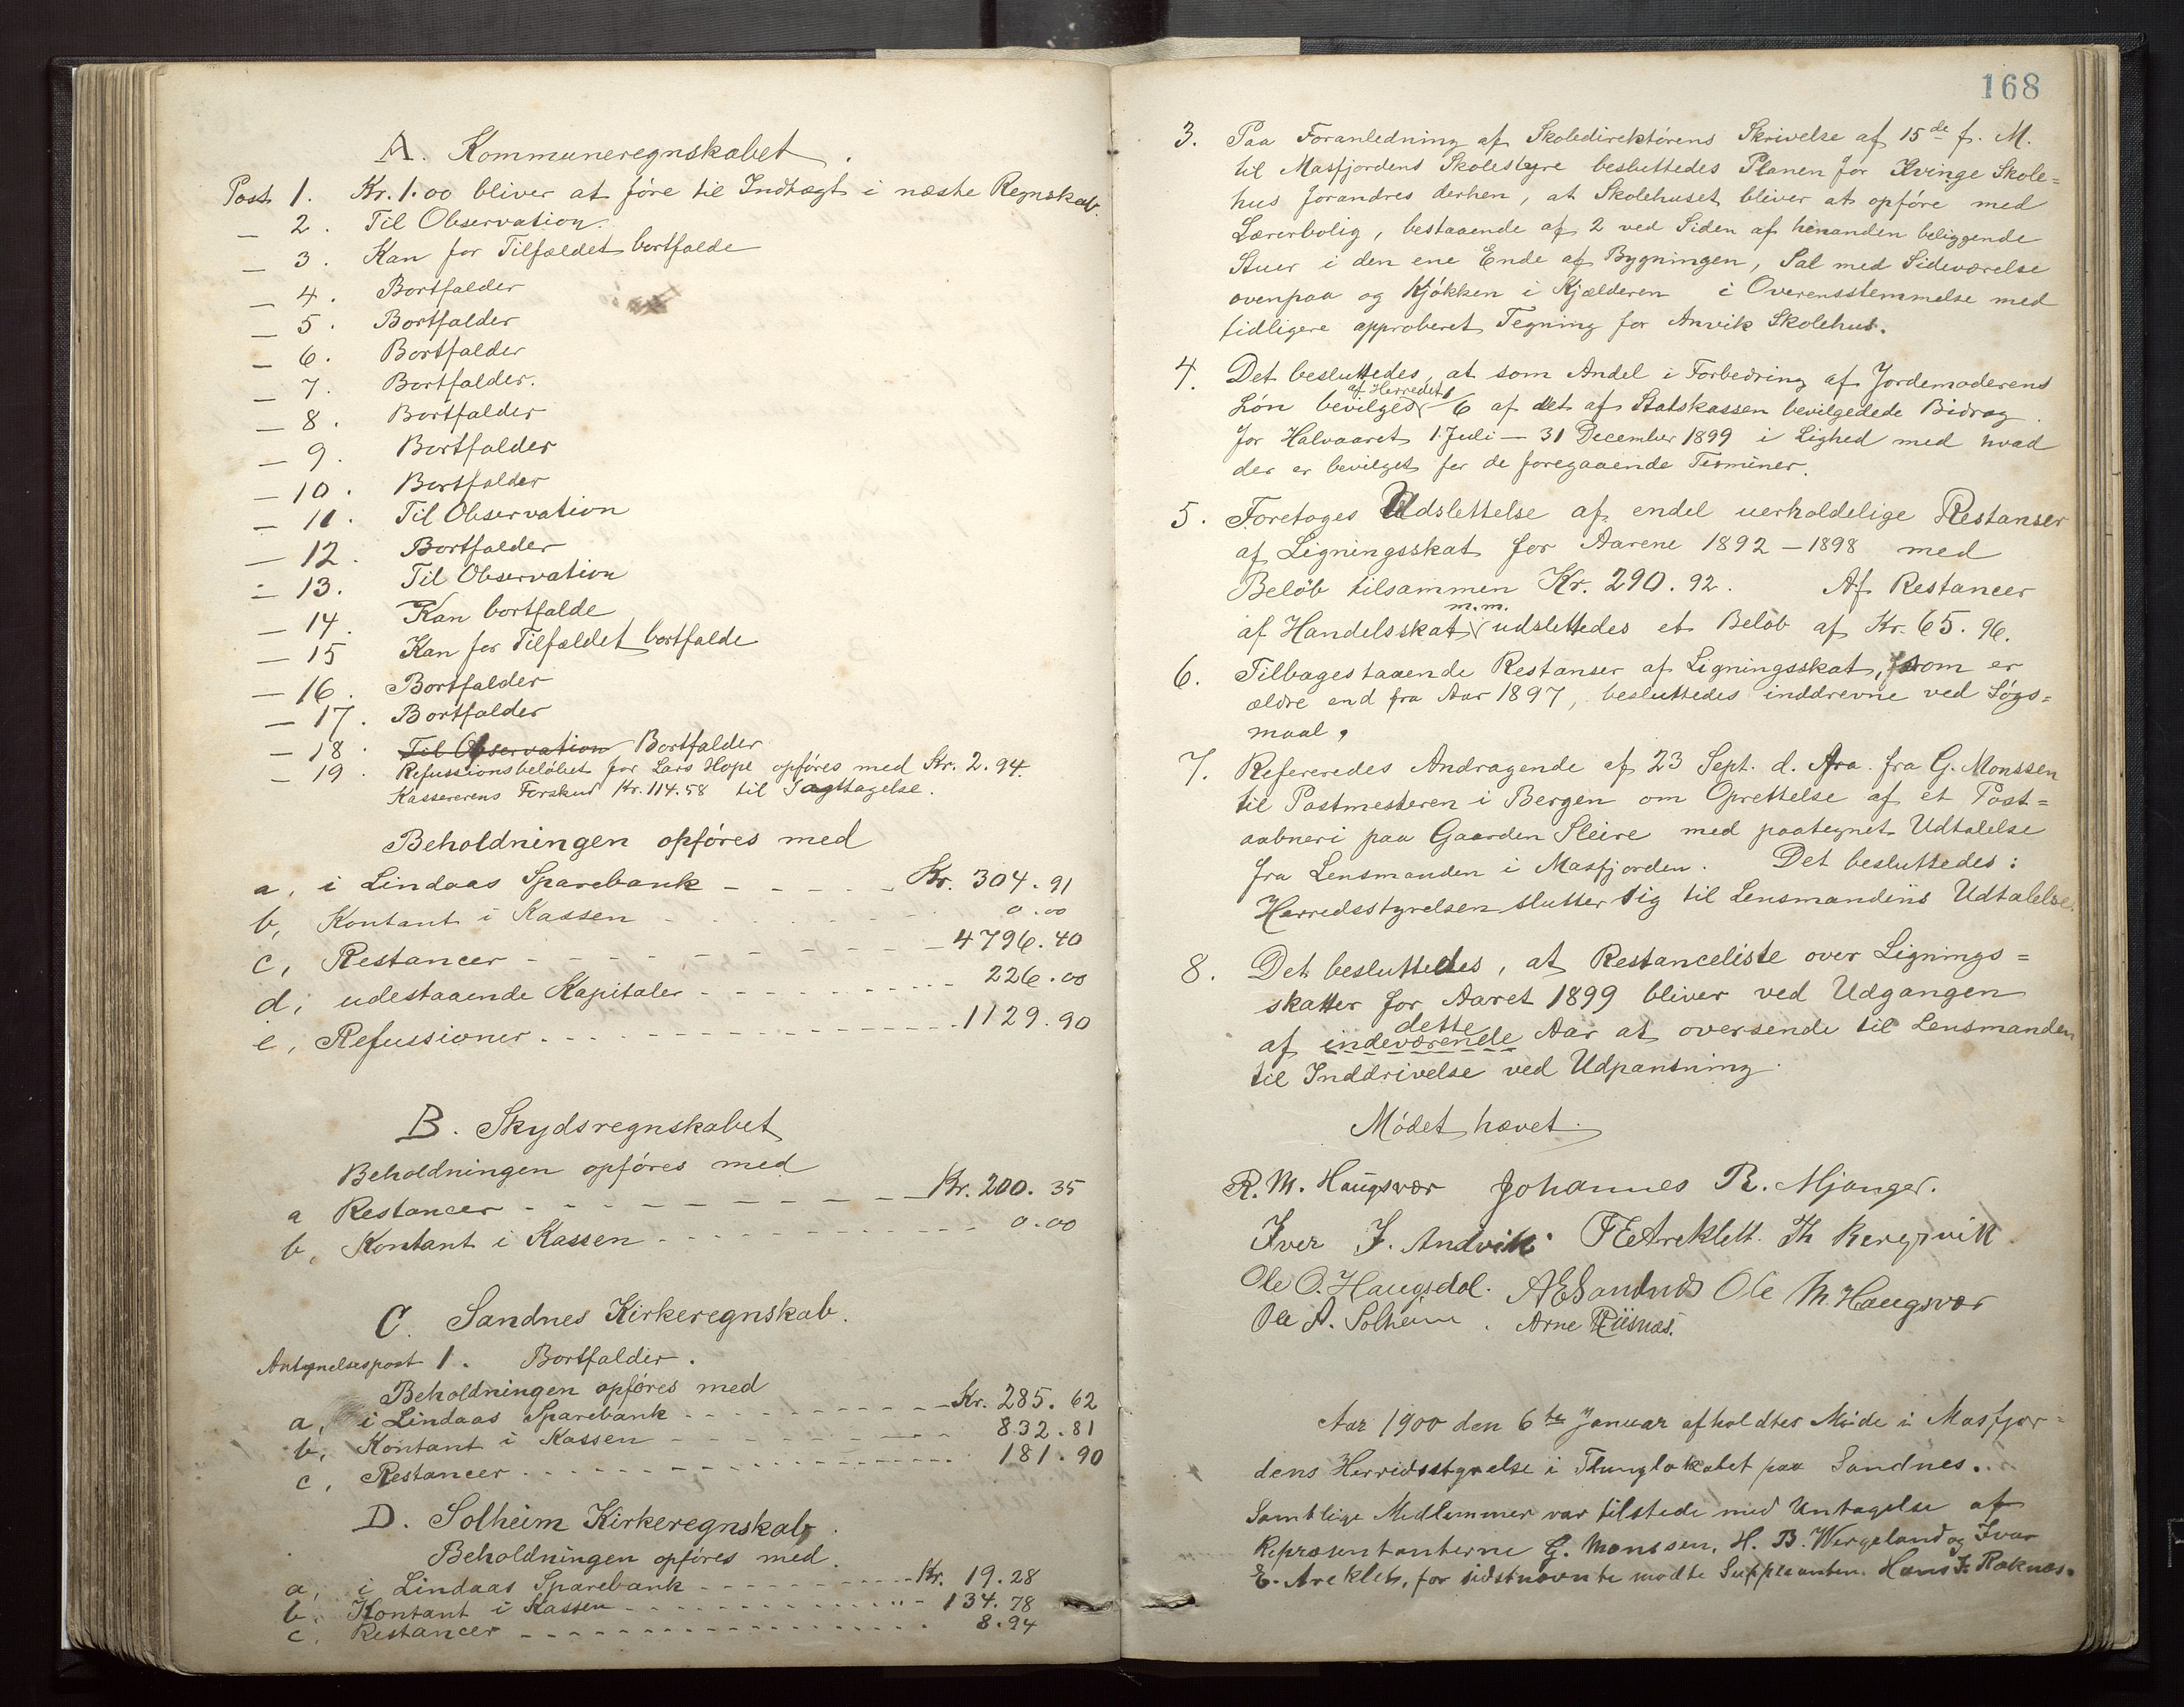 A. Kommuneregnskabet.
Post 1. Kr. 1.00 bliver at före til Indtægt i næste Regnskab.
— 2. Til Observation.
— 3. Kan for Tilfældet bortfalde
— 4. Bortfalder
— 5. Bortfalder
— 6. Bortfalder
— 7. Bortfalder.
— 8. Bortfalder
— 9. Bortfalder
— 10. Bortfalder
— 11. Til Observation
— 12. Bortfalder
— 13. Til Observation
— 14. Kan bortfalde
— 15 Kan for Tilfældet bortfalde
— 16. Bortfalder
— 17. Bortfalder
— 18. Til Observation Bortfalder
— 19. Refussionsbelöbet for Lars Hope opföres med Kr. 2.94.
Kassererens Forskud Kr. 114.58 til Iagttagelse.
Beholdningen opföres med
a, i Lindaas Sparebank - - - - - Kr. 304.91
b, Kontant i Kassen - - - - - 0.00
c, Restancer - - - - - 4796.40
d, udestaaende Kapitaler - - - - - 226.00
e, Refussioner - - - - - 1129.90
B. Skydsregnskabet
Beholdningen opföres med
a Restancer - - - - - Kr. 200.35
b, Kontant i Kassen - - - - - 0.00
C. Sandnes Kirkeregnskab.
Antegnelsespost 1. Bortfalder.
Beholdningen opföres med
a, i Lindaas Sparebank - - - - - Kr. 285.62
b, Kontant i Kassen - - - - - 832.81
c, Restancer - - - - - 181.90
D. Solheim Kirkeregnskab.
Beholdningen opföres med.
a, i Lindaas Sparebank - - - - - Kr. 19.28
b. Kontant i Kassen - - - - - 134.78
c. Restancer - - - - - 8.94
168
3. Paa Foranledning af Skoledirektörens Skrivelse af 15de f. M.
til Masfjordens Skolestyre besluttedes Planen for Kvinge Skole=
hus forandres derhen, at Skolehuset bliver at opföre med
Lærerbolig, bestaaende af 2 ved Siden af hinanden beliggende
Stuer i den ene Ende af Bygningen, Sal med Sideværelse
ovenpaa og Kjökken i Kjælderen i Overensstemmelse med
tidligere approberet Tegning for Anvik Skolehus.
4. Det besluttedes, at som Andel i Forbedring af Jordemoderens
af Herredet
Lön bevilges 1/6 af det af Statskassen bevilgedede Bidrag
for Halvaaret 1. Juli — 31 December 1899 i Lighed med hvad
der er bevilget for de foregaaende Terminer.
5. Foretoges Udslettelse af endel uerholdelige Restanser
af Ligningsskat for Aarene 1892 – 1898 med
Belöb tilsammen Kr. 290.92. Af Restancer
m.m.
af Handelsskat udslettedes et Belöb af Kr. 65.96.
6. Tilbagestaaende Restanser af Ligningsskat, som er
ældre end fra Aar 1897, besluttedes inddrevne ved Lögs=
maal.
7. Refereredes Andragende af 23 Sept. d. Ara. fra G. Monssen
til Postmesteren i Bergen om Oprettelse af et Post=
aabneri paa Gaarden Sleire med paategnet Udtalelse
fra Lensmanden i Masfjorden. Det besluttedes:
Herredsstyrelsen slutter sig til Lensmandens Udtalelse.
8. Det besluttedes, at Restanceliste over Lignings=
skatter for Aaret 1899 bliver ved Udgangen
dette
af indeværende Aar at oversende til Lensmanden
til Inddrivelse ved Udpantning.
Mödet hævet.
R. M. Haugsvær Johannes R. Mjanger.
Iver J. Andvik. T E Areklett. Th Bergsvik.
Ole O. Haugsdal. A E Sandnæs Ole M. Haugsvær
Ole A. Solheim. Arne Riisnæs.
Aar 1900 den 6te Januar afholdtes Möde i Masfjor=
dens Herredsstyrelse i Thinglokalet paa Sandnes.
Samtlige Medlemmer var tilstede med Untagelse af
Repræsentanterne G. Monssen, H. B. Wergeland og Ivar
E. Areklet, for sidstnævnte mödte Suppleanten Hans J. Roknæs.